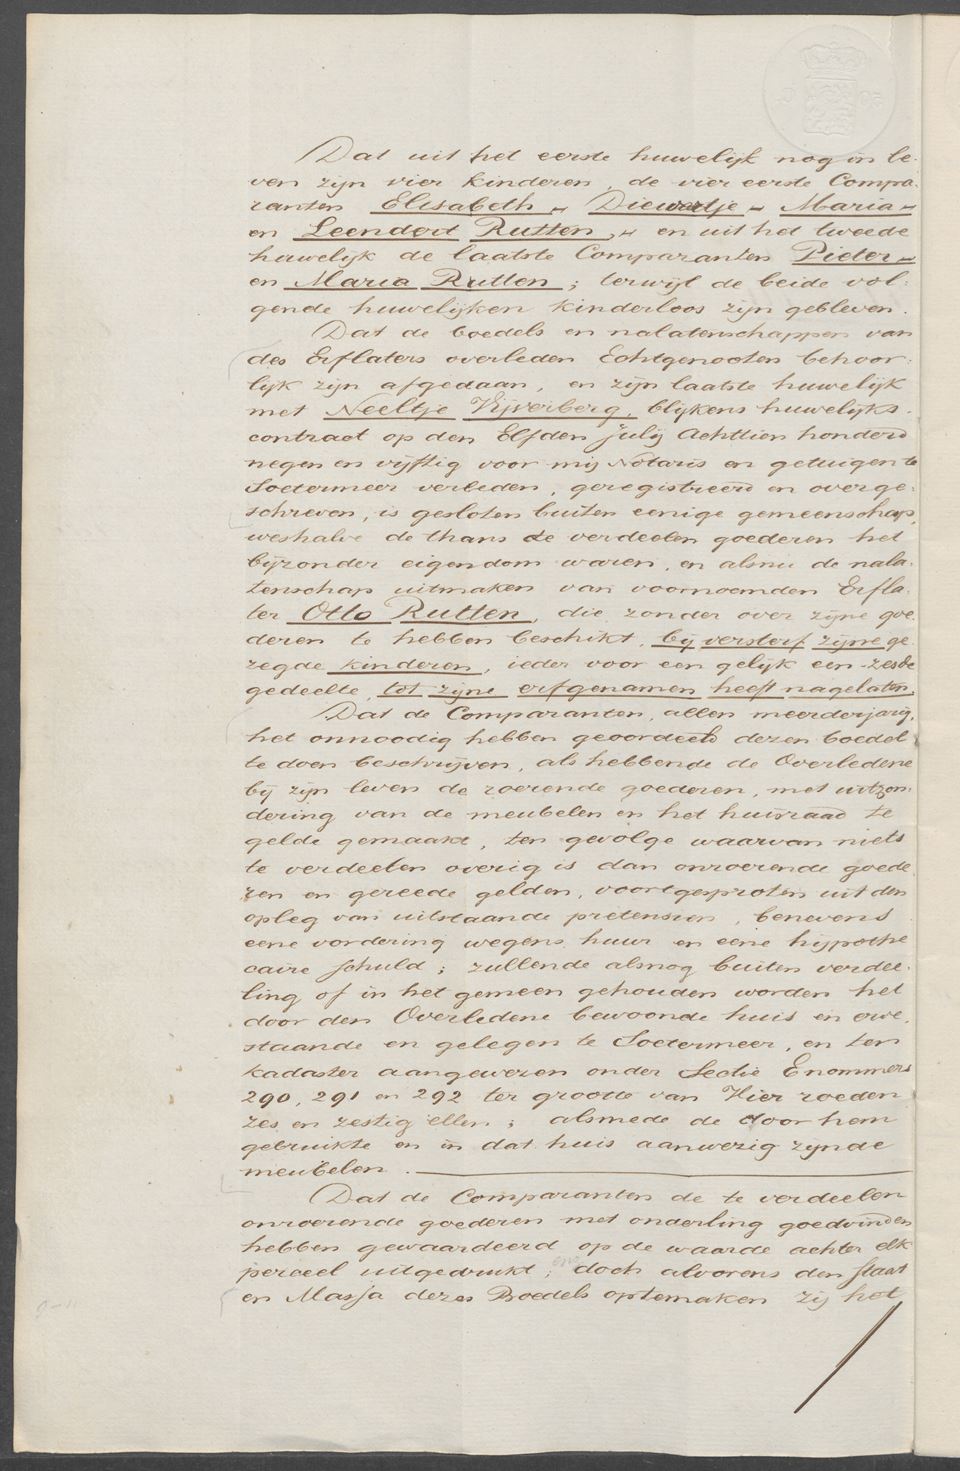 Dat uit het eerste huwelijk nog in le-
ven zijn vier kinderen, de vier eerste Compa-
ranten Elisabeth - Diewertje - Maria -
en Leendert Rutten, - en uit het tweede
huwelijk de laatste Comparanten Pieter -
en Maria Rutten; terwijl de beide vol-
gende huwelijken kinderloos zijn gebleven.
Dat de boedels en nalatenschappen van
des Erflaters overleden Echtgenooten behoor-
lijk zijn afgedaan, en zijn laatste huwelijk
met Neeltje Vijverberg, blijkens huwelijks-
contract op den Elfden Julij Achttien honderd
negen en vijftig voor mij Notaris en getuigen te
Soetermeer verleden, geregistreerd en overge-
schreven, is gesloten buiten eenige gemeenschap,
weshalve de thans te verdeelen goederen het
bijzonder eigendom waren, en alsnu de nala-
tenschap uitmaken van voornoemden Erfla-
ter Otto Rutten, die zonder over zijne goe-
deren te hebben beschikt, bij versterf zijne ge-
zegde kinderen, ieder voor een gelijk een-zesde
gedeelte, tot zijne erfgenamen heeft nagelaten.
Dat de Comparanten, allen meerderjarig,
het onnoodig hebben geoordeeld dezen boedel
te doen beschrijven, als hebbende de Overledene
bij zijn leven de roerende goederen, met uitzon-
dering van de meubelen en het huisraad te
gelde gemaakt, ten gevolge waarvan niets
te verdeelen overig is dan onroerende goede
ren en gereede gelden, voortgesproten uit den
opleg van uitstaande pretensien, benevens
eene vordering wegens huur en eene hijpothe
caire schuld; zullende alsnog buiten verdee-
ling of in het gemeen gehouden worden het
door den Overledene bewoonde huis en erve,
staande en gelegen te Soetermeer, en ten
kadaster aangewezen onder Sectie E nommers
290, 291 en 292 ter groote van Vier roeden
zes en zestig ellen; alsmede de door hem
gebruikte en in dat huis aanwezig zijnde
meubelen.
Dat de Comparanten de te verdeelen
onroerende goederen met onderling goedvinden
hebben gewaardeerd op de waarde achter elk
perceel uitgedrukt; doch alvorens den staat
en Massa dezes Boedels optemaken zij het